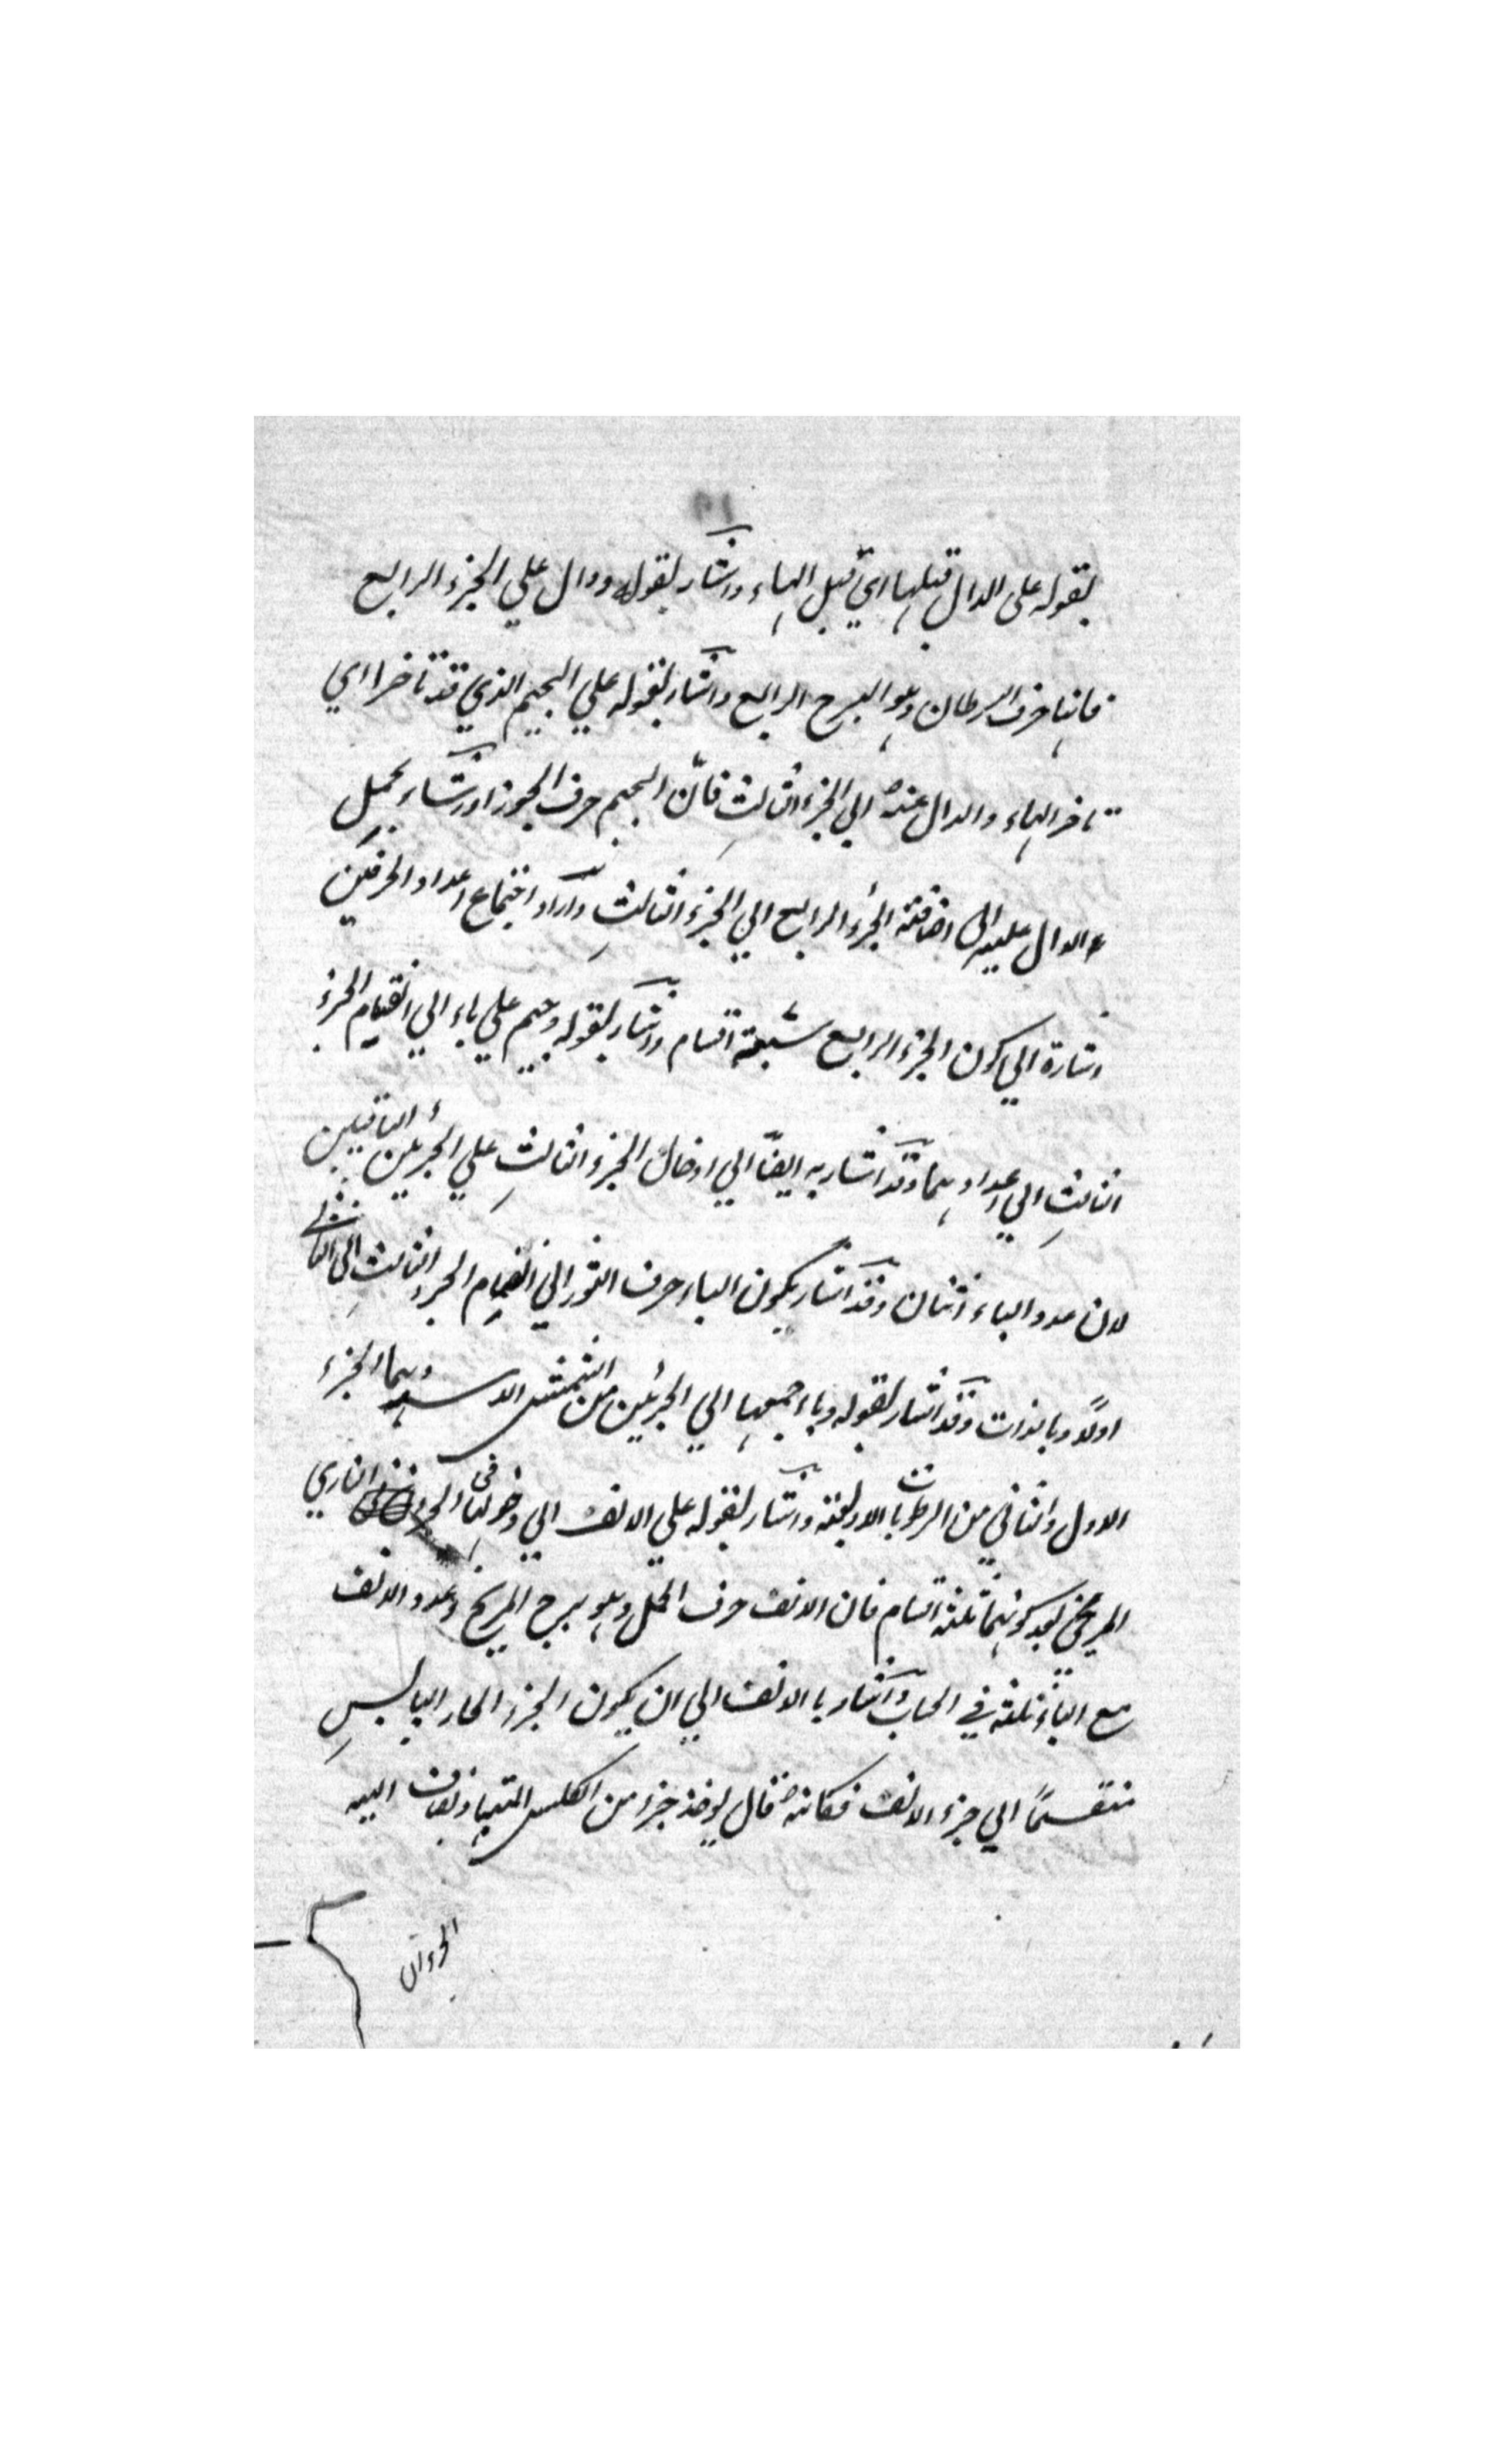 بقوله على الدال قبلها اي قبل الهاء واشار بقوله ودال علي الجزء الرابع
فانها حرف السرطان وهو البرج الرابع واشار بقوله علي الجيم الذي قد تاخرا اي
تاخر الهاء والدال عنه الي الجزء الثالث فانّ الجيم حرف الجوزا واشار بحمل
الدال عليه الى اضافة الجزء الرابع الي الجزء الثالث واراد اجتماع اعداد الحرفين
اشارة الي كون الجزء الرابع سبعة اقسام واشار بقوله وجيم علي باء الي انقسام الجزء
الثالث الي اعدادهما وقد اشار به ايضاً الي ادخال الجزء الثالث علي الجزئين الباقيين
لان عدد الباء اثنان وقد اشار بكون الباء حرف الثور الي انضمام الجزء الثالث الى الثاني
اولاً وبالذات وقد اشار بقوله وباء جميعها الي الجزئين من الشمس وهما الجزء
الاول والثاني من الرطوبات الاربعة واشار بقوله علي الالف الي دخولها في الجزء الناري
المريخي بعد كونهما ثلثة اقسام فان الالف حرف الحمل وهو برج المريخ وعدد الالف
مع الباء ثلثة في الحساب واشار بالالف الي ان يكون الجزء الحار اليابس
منقسماً الي جزء الالف فكانه قال يوخذ جزء من الكلس ويضاف اليه
الجزءان